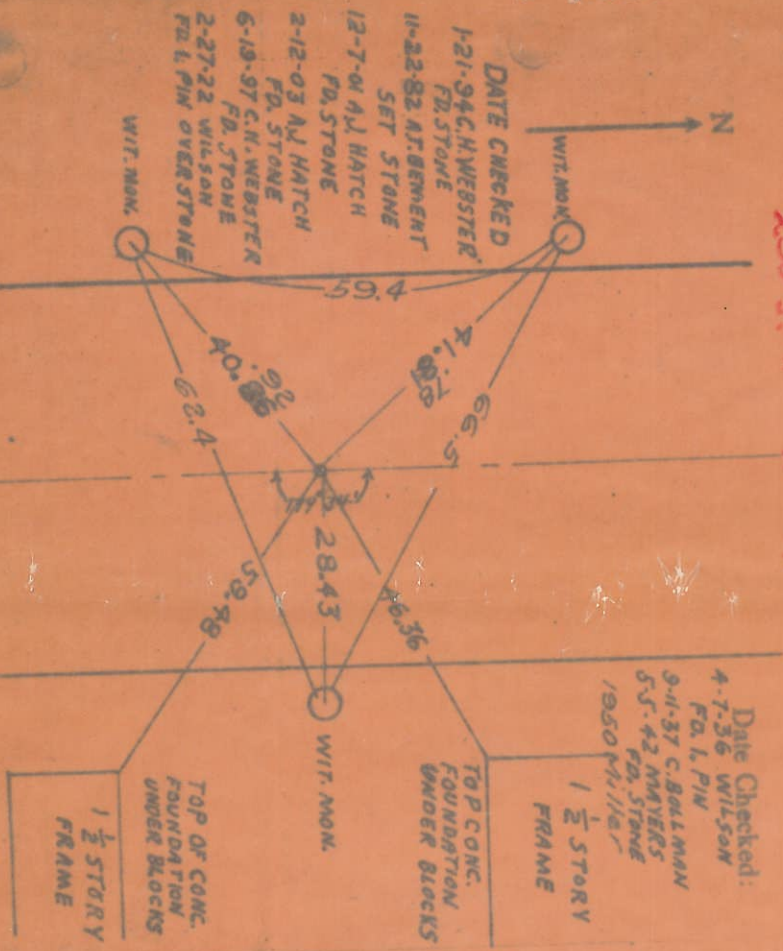 N
WIT. MON.
DATE CHECKED
1-21-94 C.H. WEBSTER
FD. STONE
11-22-82 A.T. BEMENT
SET STONE
12-7-01 A.J. HATCH
FD. STONE
2-12-03 A.J. HATCH
FD. STONE
6-19-97 C.H. WEBSTER
FD. STONE
2-27-22 WILSON
FD. I. PIN OVER STONE
WIT. MON.
59.4
41.78
66.5
40.26
62.4
28.43
46.36
59.98
WIT. MON.
Date Checked:
4-7-36 WILSON
FD. I. PIN
9-11-37 C. BOLLMAN
5-5-42 MAYERS
FD. STONE
1950 Miller
1 1/2 STORY
FRAME
TOP CONC.
FOUNDATION
UNDER BLOCKS
TOP OF CONC.
FOUNDATION
UNDER BLOCKS
1 1/2 STORY
FRAME